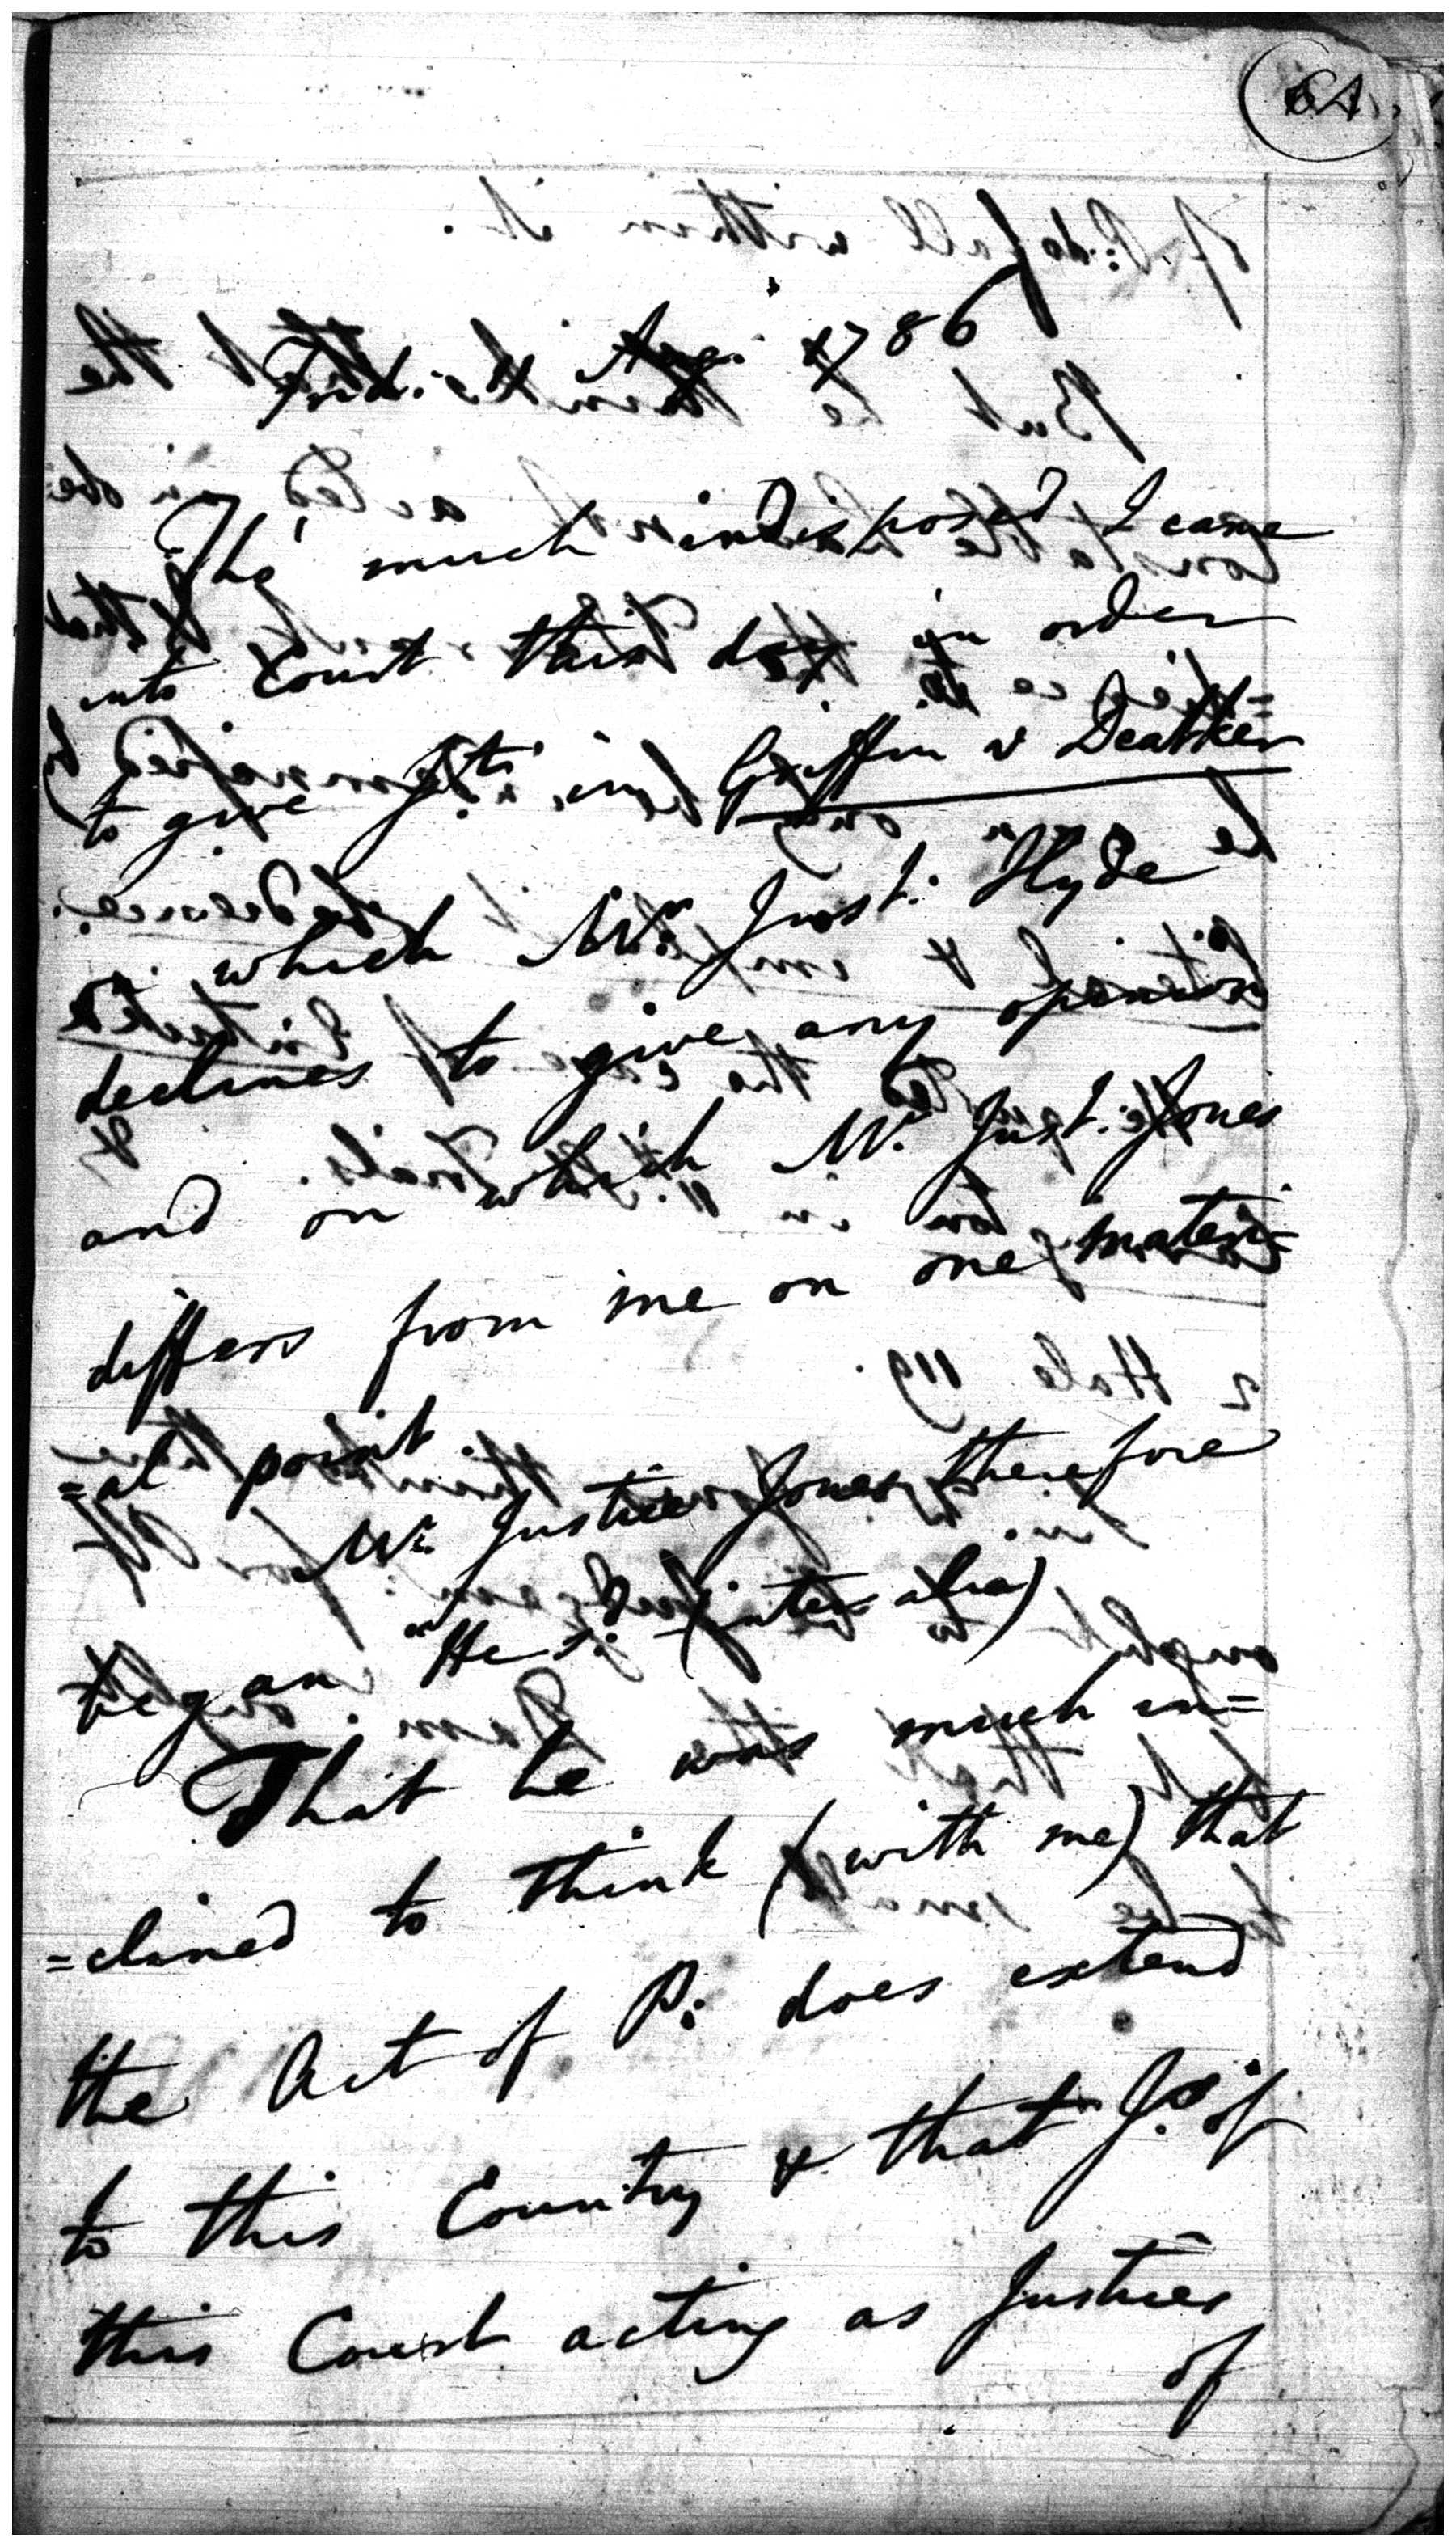 64
Frid. 4 Aug. 1786
Tho' much indisposed I came
into Court this day in order
to give Jt. in Griffin v Deatker
in which Mr. Just. Hyde
declines to give any opinion
and on which Mr. Just. Jones
differs from me on one materi=
=al point.
Mr. Justice Jones therefore
began He sd. (inter alia)
That he was much in=
=clined to think (with me) that
the Act of P: does extend
to this Country & that Js. of
this Court acting as Justices
of